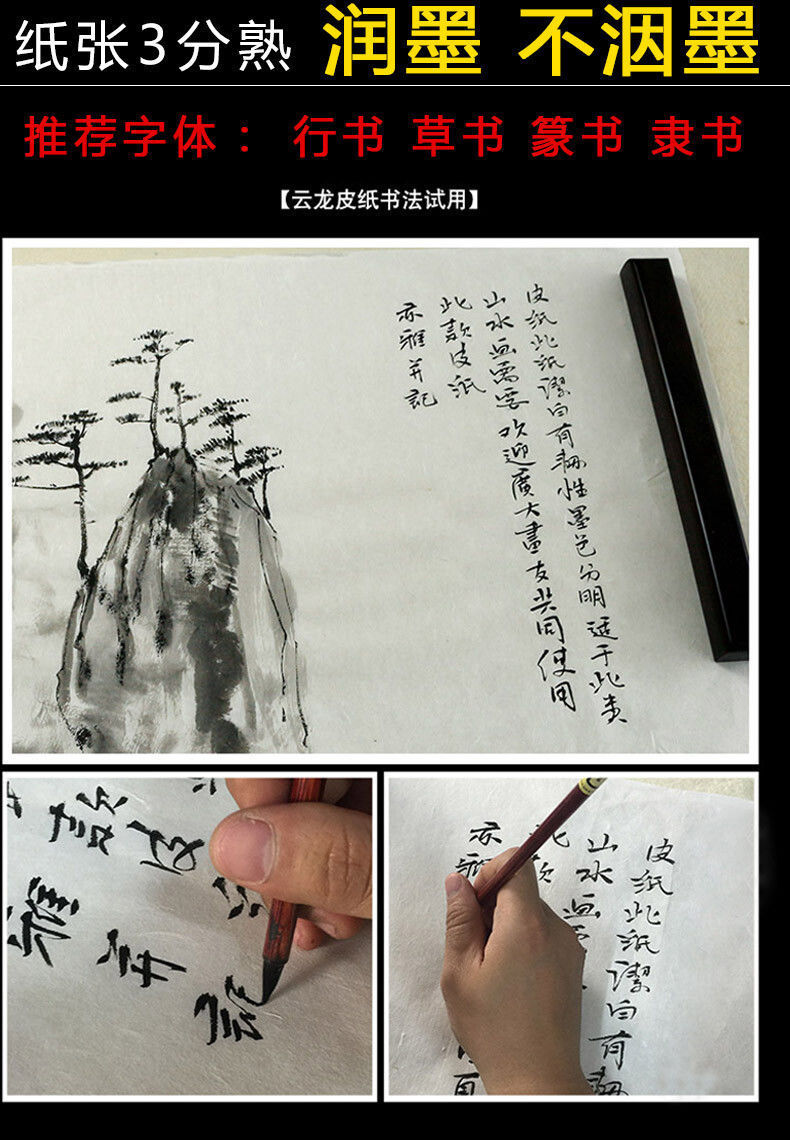 纸张3分熟 润墨 不洇墨
推荐字体： 行书 草书 篆书 隶书
【云龙皮纸书法试用】
皮纸此纸潔白有韧性墨色分明适于此类
山水画需要欢迎廣大畫友共同使用
此款皮纸
亦雅并記
款皮
雅并記
皮纸此纸潔白有韧
山水画
此款
亦雅